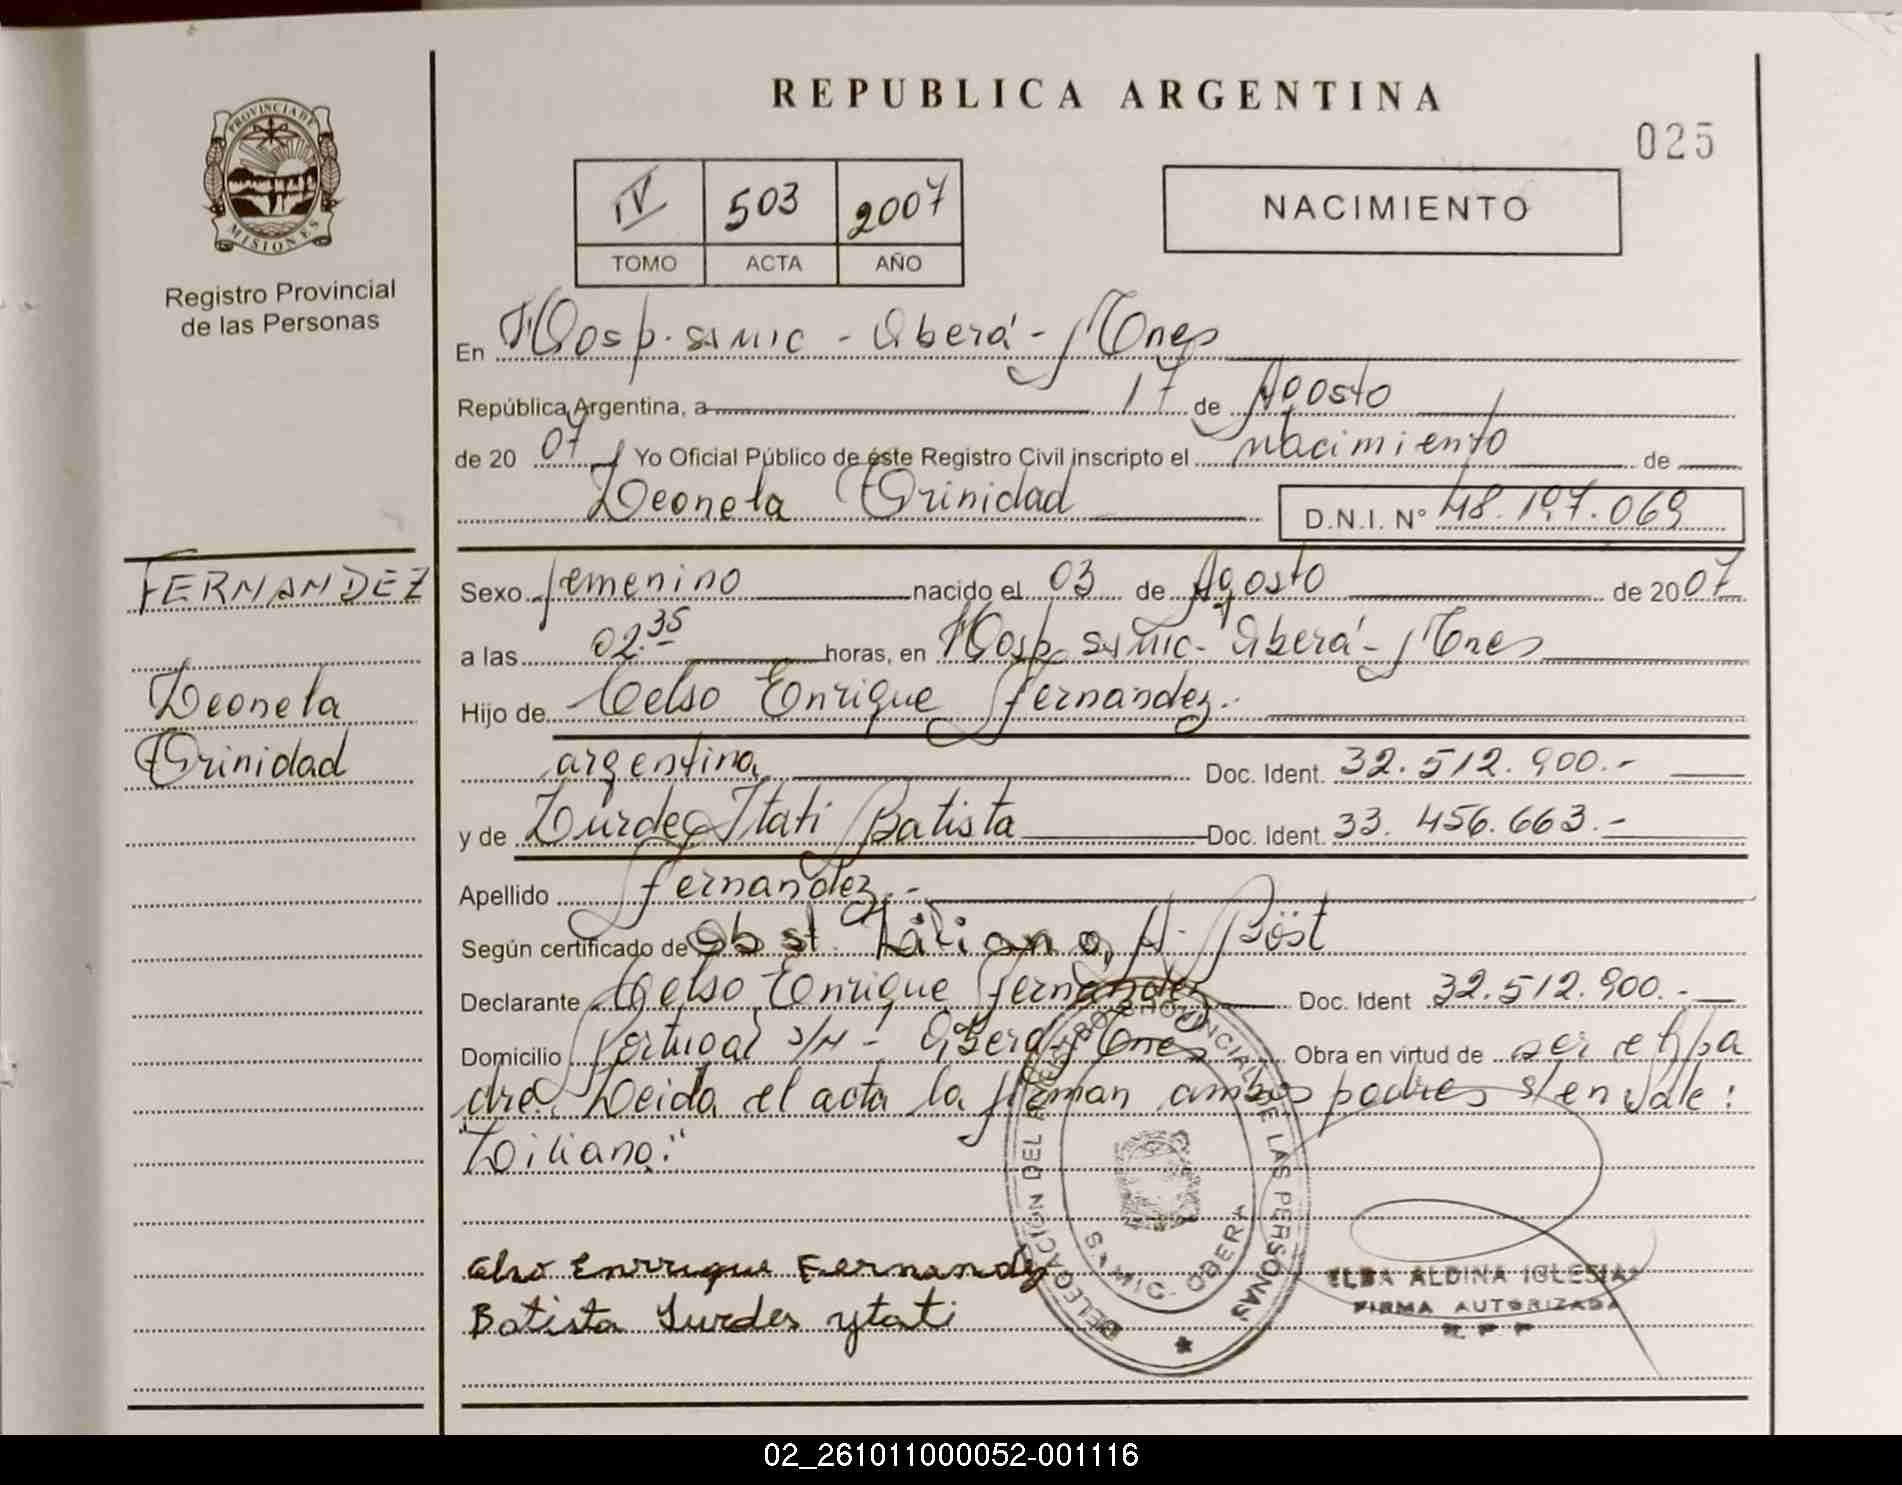 REPUBLICA ARGENTINA
025
PROVINCIA DE MISIONES
Registro Provincial
de las Personas
IV 503 2007
TOMO ACTA AÑO
NACIMIENTO
En Hosp. SAMIC - Oberá - Mnes
República Argentina, a 17 de Agosto
de 2007 Yo Oficial Público de éste Registro Civil inscripto el nacimiento de
Leonela Trinidad D.N.I. N° 48.197.069
FERNANDEZ
Leonela
Trinidad
Sexo femenino nacido el 03 de Agosto de 2007
a las 02.35 horas, en Hosp. SAMIC - Oberá - Mnes
Hijo de Celso Enrique Fernandez.-
argentina Doc. Ident. 32.512.900.-
y de Lurdes Itati Batista Doc. Ident. 33.456.663.-
Apellido Fernandez.-
Según certificado de Obst. Liliana A. Böst
Declarante Celso Enrique Fernandez Doc. Ident 32.512.900.-
Domicilio Portugal S/N - Oberá - Mnes Obra en virtud de ser el pa
dre. Leida el acta la firman ambos padres s/en Vale:
"Liliana."
Celso Enrrique Fernandez
Batista Lurdes ytati
DELEGACIÓN DEL REGISTRO PROVINCIAL DE LAS PERSONAS
SAMIC - OBERÁ
ELBA ALDINA IGLESIAS
FIRMA AUTORIZADA
R P P
02_261011000052-001116